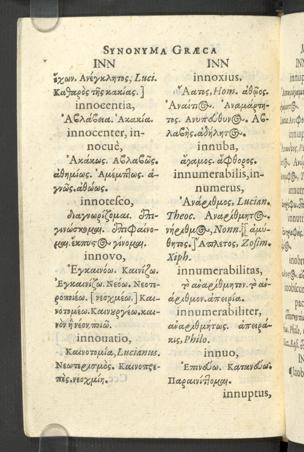 SYNONYMA GRÆCA
INN
ἔχων. Ἀνέγκλητος, Luci.
Καθαρὸς τῆς κακίας.]
innocentia,
Ἀβλάβεια. Ἀκακία.
innocenter, in-
nocuè,
Ἀκάκως. Ἀβλαβῶς.
ἀθημίως. Ἀμέμπτως. ἁ-
γνῶς. ἀθώως.
innotesco,
διαγνωρίζομαι. ἐπι-
γινώσκομαι. ἐπιφαίνο-
μαι. ἔκπυστος γίνομαι.
innovo,
Ἐγκαινόω. Καινίζω.
Ἐγκαινίζω. Νεόω. Νεοτε-
ροποιέω. [νεοχμέω.] Και-
νοτομέω. Καινουργέω. και-
νὸν ἢ νέον ποιῶ.
innouatio,
Καινοτομία, Lucianus.
Νεωτερισμὸς. Καινοπρε-
πὲς. νεοχμίη.
INN
innoxius,
Ἄατος, Hom. ἀθῷος.
Ἀναίτιος. Ἀναμάρτη-
τος. Ἀνυπεύθυνος. Ἀβ-
λαβής. ἀδήλητος.
innuba,
ἄγαμος. ἄφθορος.
innumerabilis, in-
numerus,
Ἀνάριθμος. Lucian.
Theoc. Ἀναρίθμητος.
νήριθμος, Nonn. [ἀμύ-
θητος.] Ἄπλετος, Zosim.
Xiph.
innumerabilitas,
τὸ ἀναρίθμητον. τὸ ἀν-
άριθμον. ἀπειρία.
innumerabiliter,
ἀναριθμήτως. ἀπειρά-
κις, Philo.
innuo,
Ἐπινεύω. Κατανεύω.
Παραινίττομαι.
innuptus,